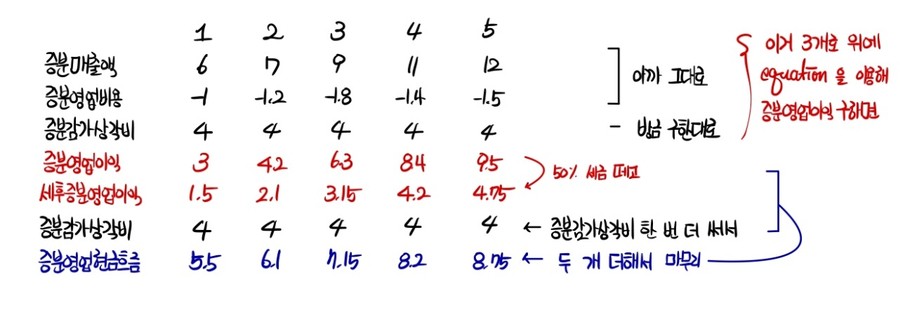 1 2 3 4 5
증분매출액 6 7 9 11 12
증분영업비용 -1 -1.2 -1.8 -1.4 -1.5
아까 그대로
증분감가상각비 4 4 4 4 4 - 방금 구한대로
이거 3개로 위에
equation을 이용해
증분영업이익 구하면
증분영업이익 3 4.2 6.3 8.4 9.5
50% 세금 떼고
세후증분영업이익 1.5 2.1 3.15 4.2 4.75
증분감가상각비 4 4 4 4 4 ← 증분감가상각비 한 번 더 써서
증분영업현금흐름 5.5 6.1 7.15 8.2 8.75 ← 두 개 더해서 마무리